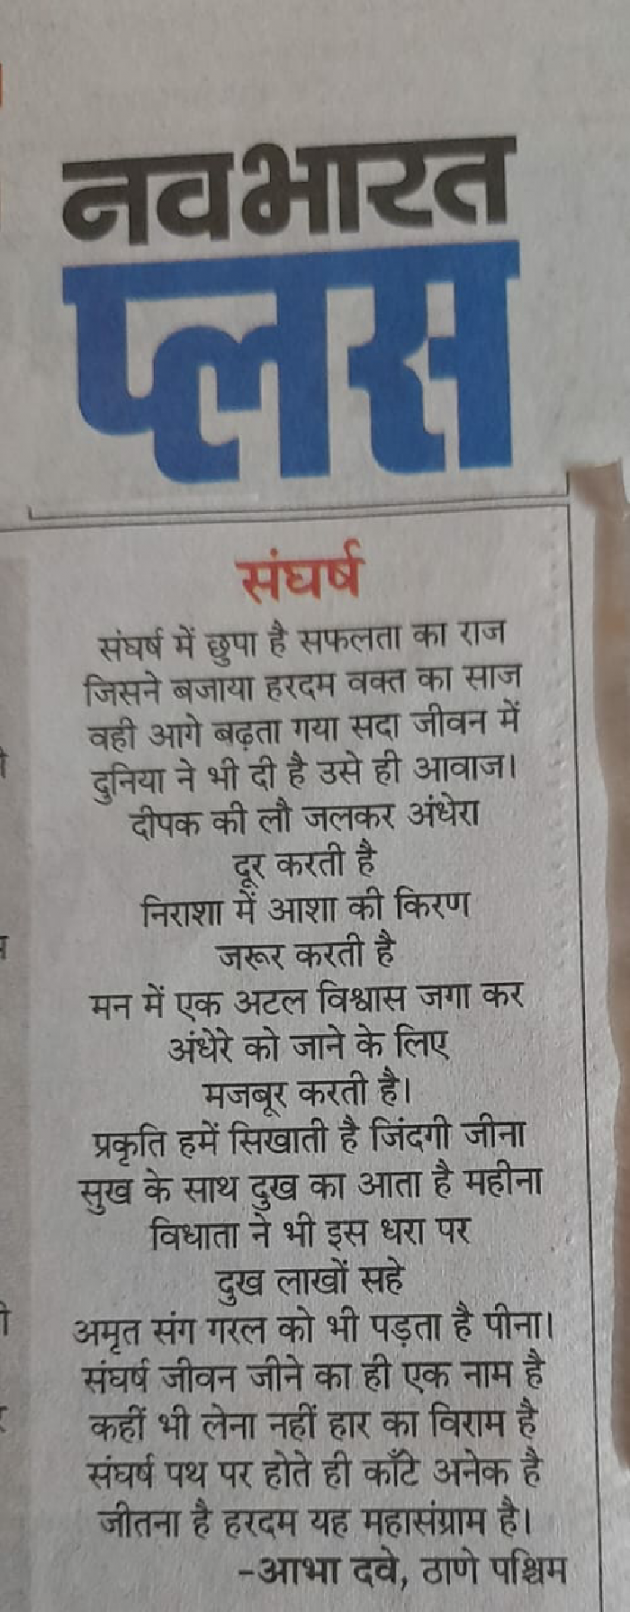 नवभारत
प्लस
संघर्ष
संघर्ष में छुपा है सफलता का राज
जिसने बजाया हरदम वक्त का साज
वही आगे बढ़ता गया सदा जीवन में
दुनिया ने भी दी है उसे ही आवाज।
दीपक की लौ जलकर अंधेरा
दूर करती है
निराशा में आशा की किरण
जरूर करती है
मन में एक अटल विश्वास जगा कर
अंधेरे को जाने के लिए
मजबूर करती है।
प्रकृति हमें सिखाती है जिंदगी जीना
सुख के साथ दुख का आता है महीना
विधाता ने भी इस धरा पर
दुख लाखों सहे
अमृत संग गरल को भी पड़ता है पीना।
संघर्ष जीवन जीने का ही एक नाम है
कहीं भी लेना नहीं हार का विराम है
संघर्ष पथ पर होते ही काँटे अनेक है
जीतना है हरदम यह महासंग्राम है।
-आभा दवे, ठाणे पश्चिम